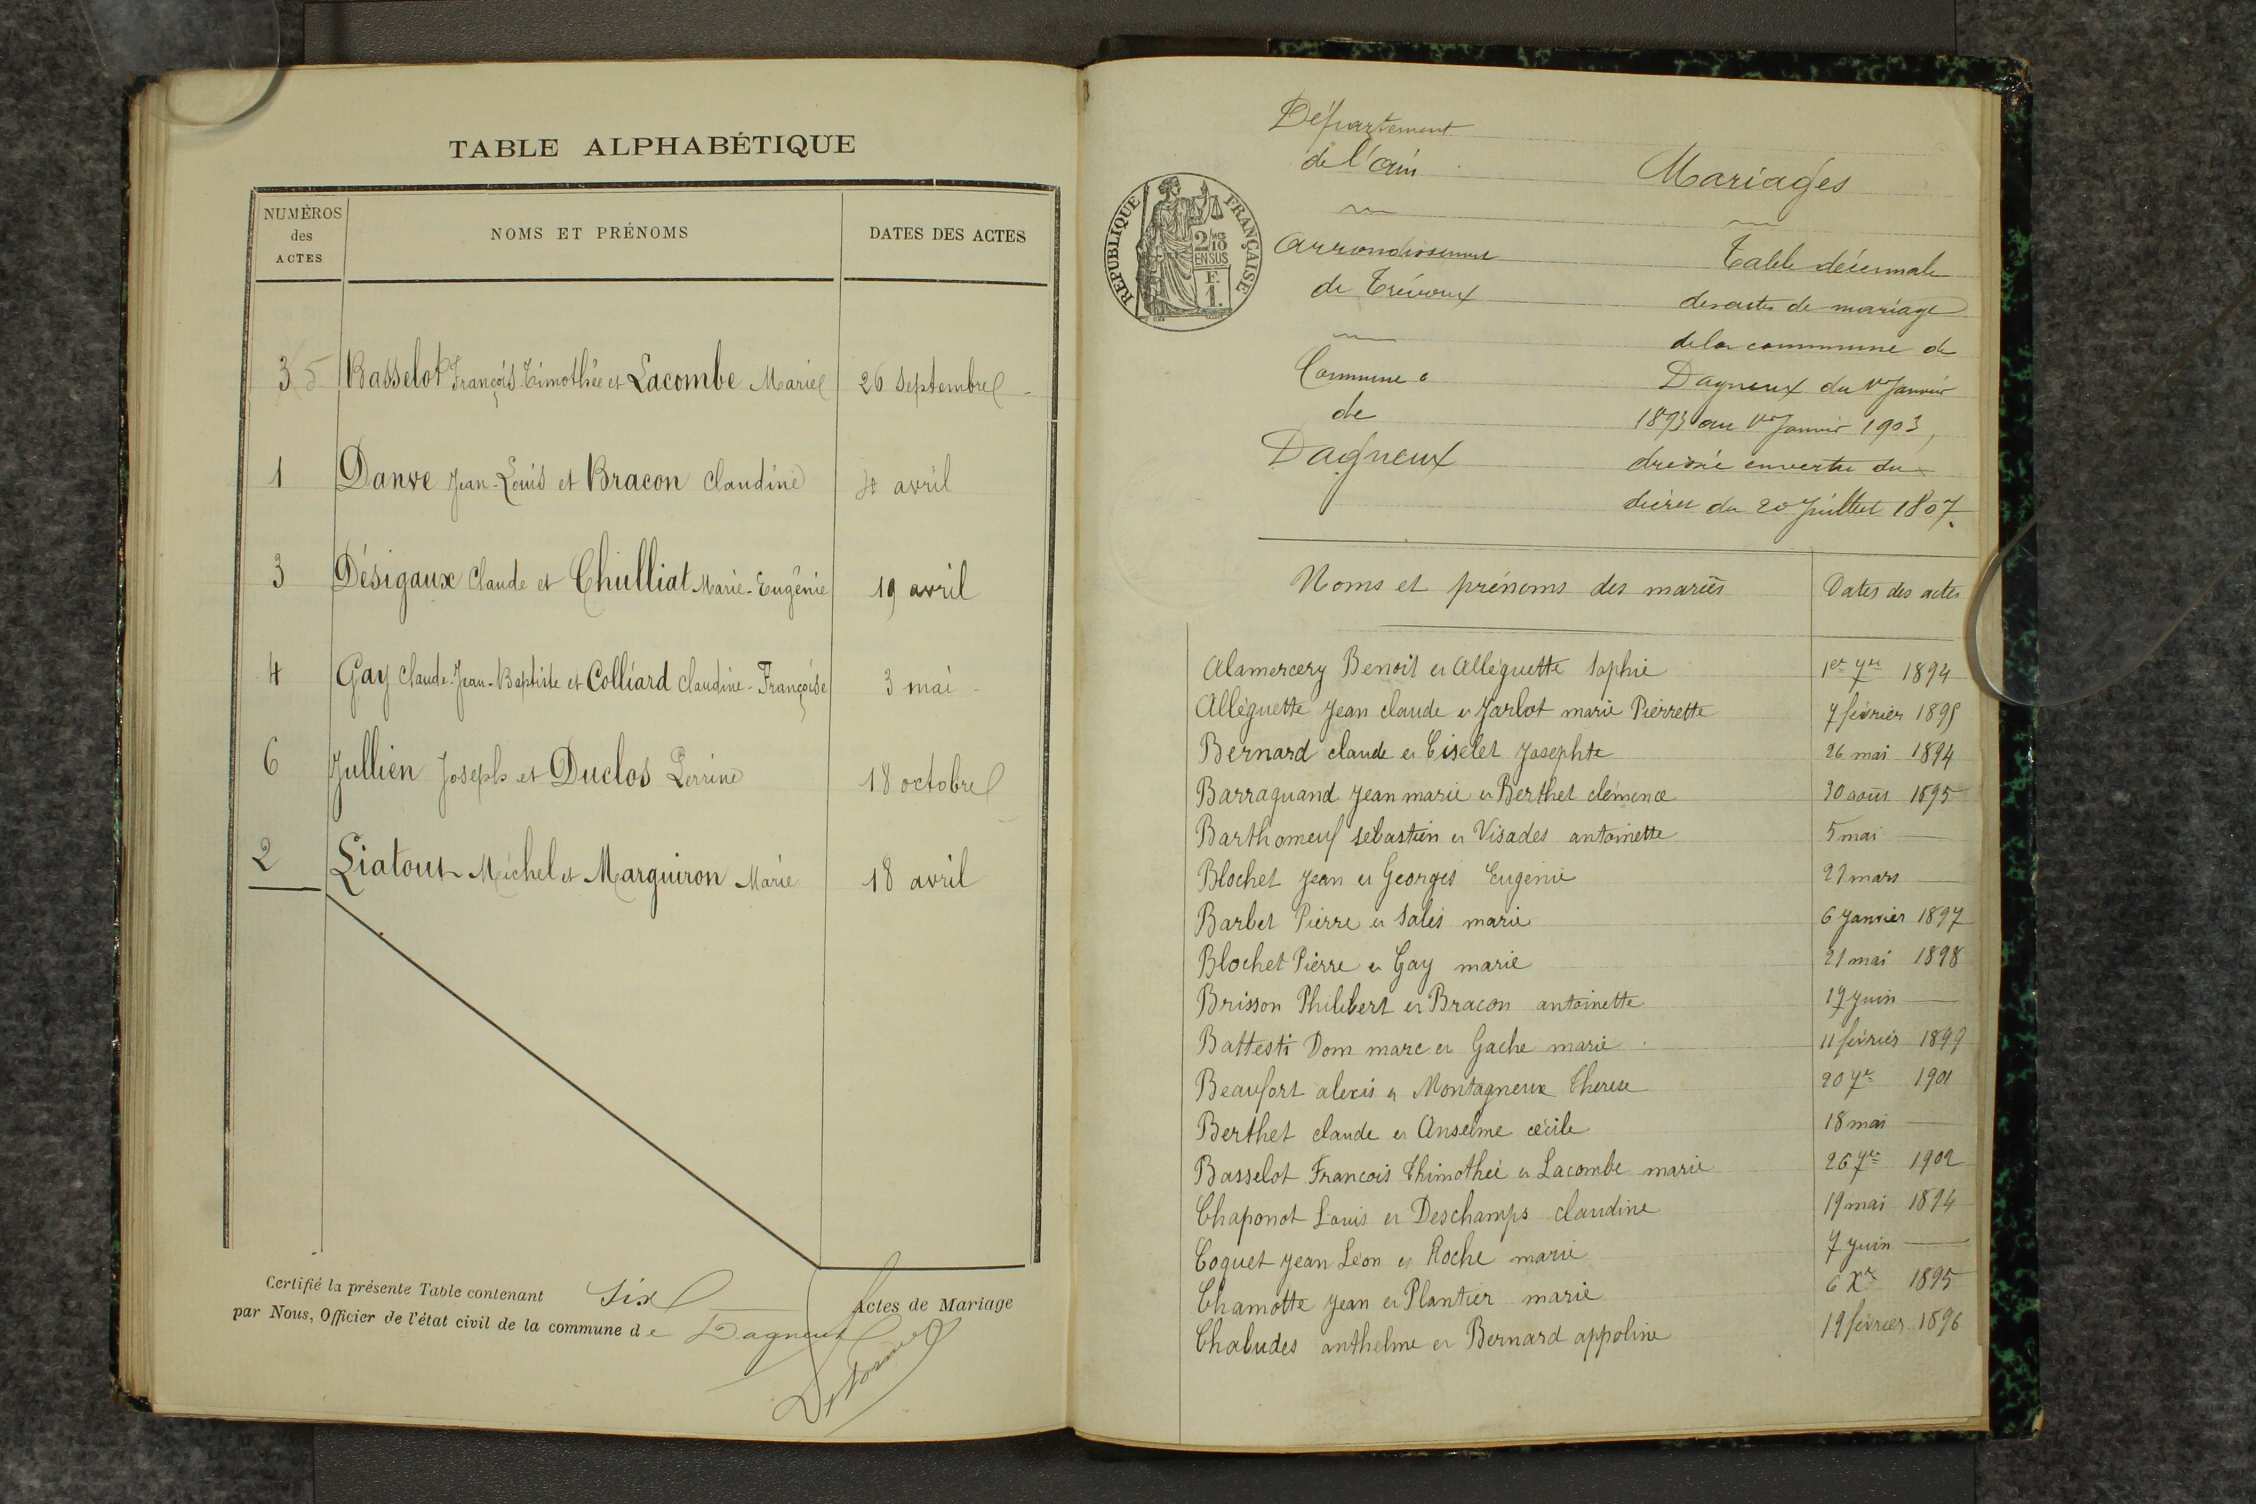 TABLE ALPHABÉTIQUE
NUMÉROS des ACTES
NOMS ET PRÉNOMS
DATES DES ACTES
5 Basselot François Timothée et Lacombe Marie 26 septembre
1 Danve Jean-Louis et Bracon Claudine 4 avril
3 Désigaux Claude et Chulliat Marie-Eugénie 19 avril
4 Gay Claude-Jean-Baptiste et Colliard Claudine-Françoise 3 mai
6 Jullien Joseph et Duclos Perrine 18 octobre
2 Liatout Michel et Marguiron Marie 18 avril
Certifié la présente Table contenant Six Actes de Mariage
par Nous, Officier de l'état civil de la commune de Dagneux
Département
de l'ain
Arrondissement
de Trévoux
Commune
de
Dagneux
RÉPUBLIQUE FRANÇAISE
2/10
EN SUS
F.
1.
Mariages
Table décennale
des actes de mariage
de la commune de
Dagneux du 1er Janvier
1893 au 1er Janvier 1903,
dressé en vertu du
décret du 20 Juillet 1807.
Noms et prénoms des mariés Dates des actes
Alamercery Benoit et Alléguette Sophie 1er 7re 1894
Alléguette Jean claude et Jarlot marie Pierrette 7 février 1895
Bernard claude et Ciselet Josephte 26 mai 1894
Barraquand Jean marie et Berthet clémence 30 août 1895
Barthomeuf sébastien et Visades antoinette 5 mai —
Blochet Jean et Georges Eugénie 21 mars —
Barbet Pierre et Sales marie 6 Janvier 1897
Blochet Pierre et Gay marie 21 mai 1898
Brisson Philibert et Bracon antoinette 17 Juin —
Battesti Dom marc et Gache marie 11 février 1899
Beaufort alexis et Montagneux Therese 20 7re 1901
Berthet claude et Anselme cécile 18 mai —
Basselot Francois Thimothée et Lacombe marie 26 7re 1902
Chaponot Louis et Deschamps claudine 19 mai 1894
Coquet Jean Léon et Roche marie 7 Juin —
Chamotte Jean et Plantier marie 6 Xre 1895
Chaludes anthelme et Bernard appoline 19 février 1896